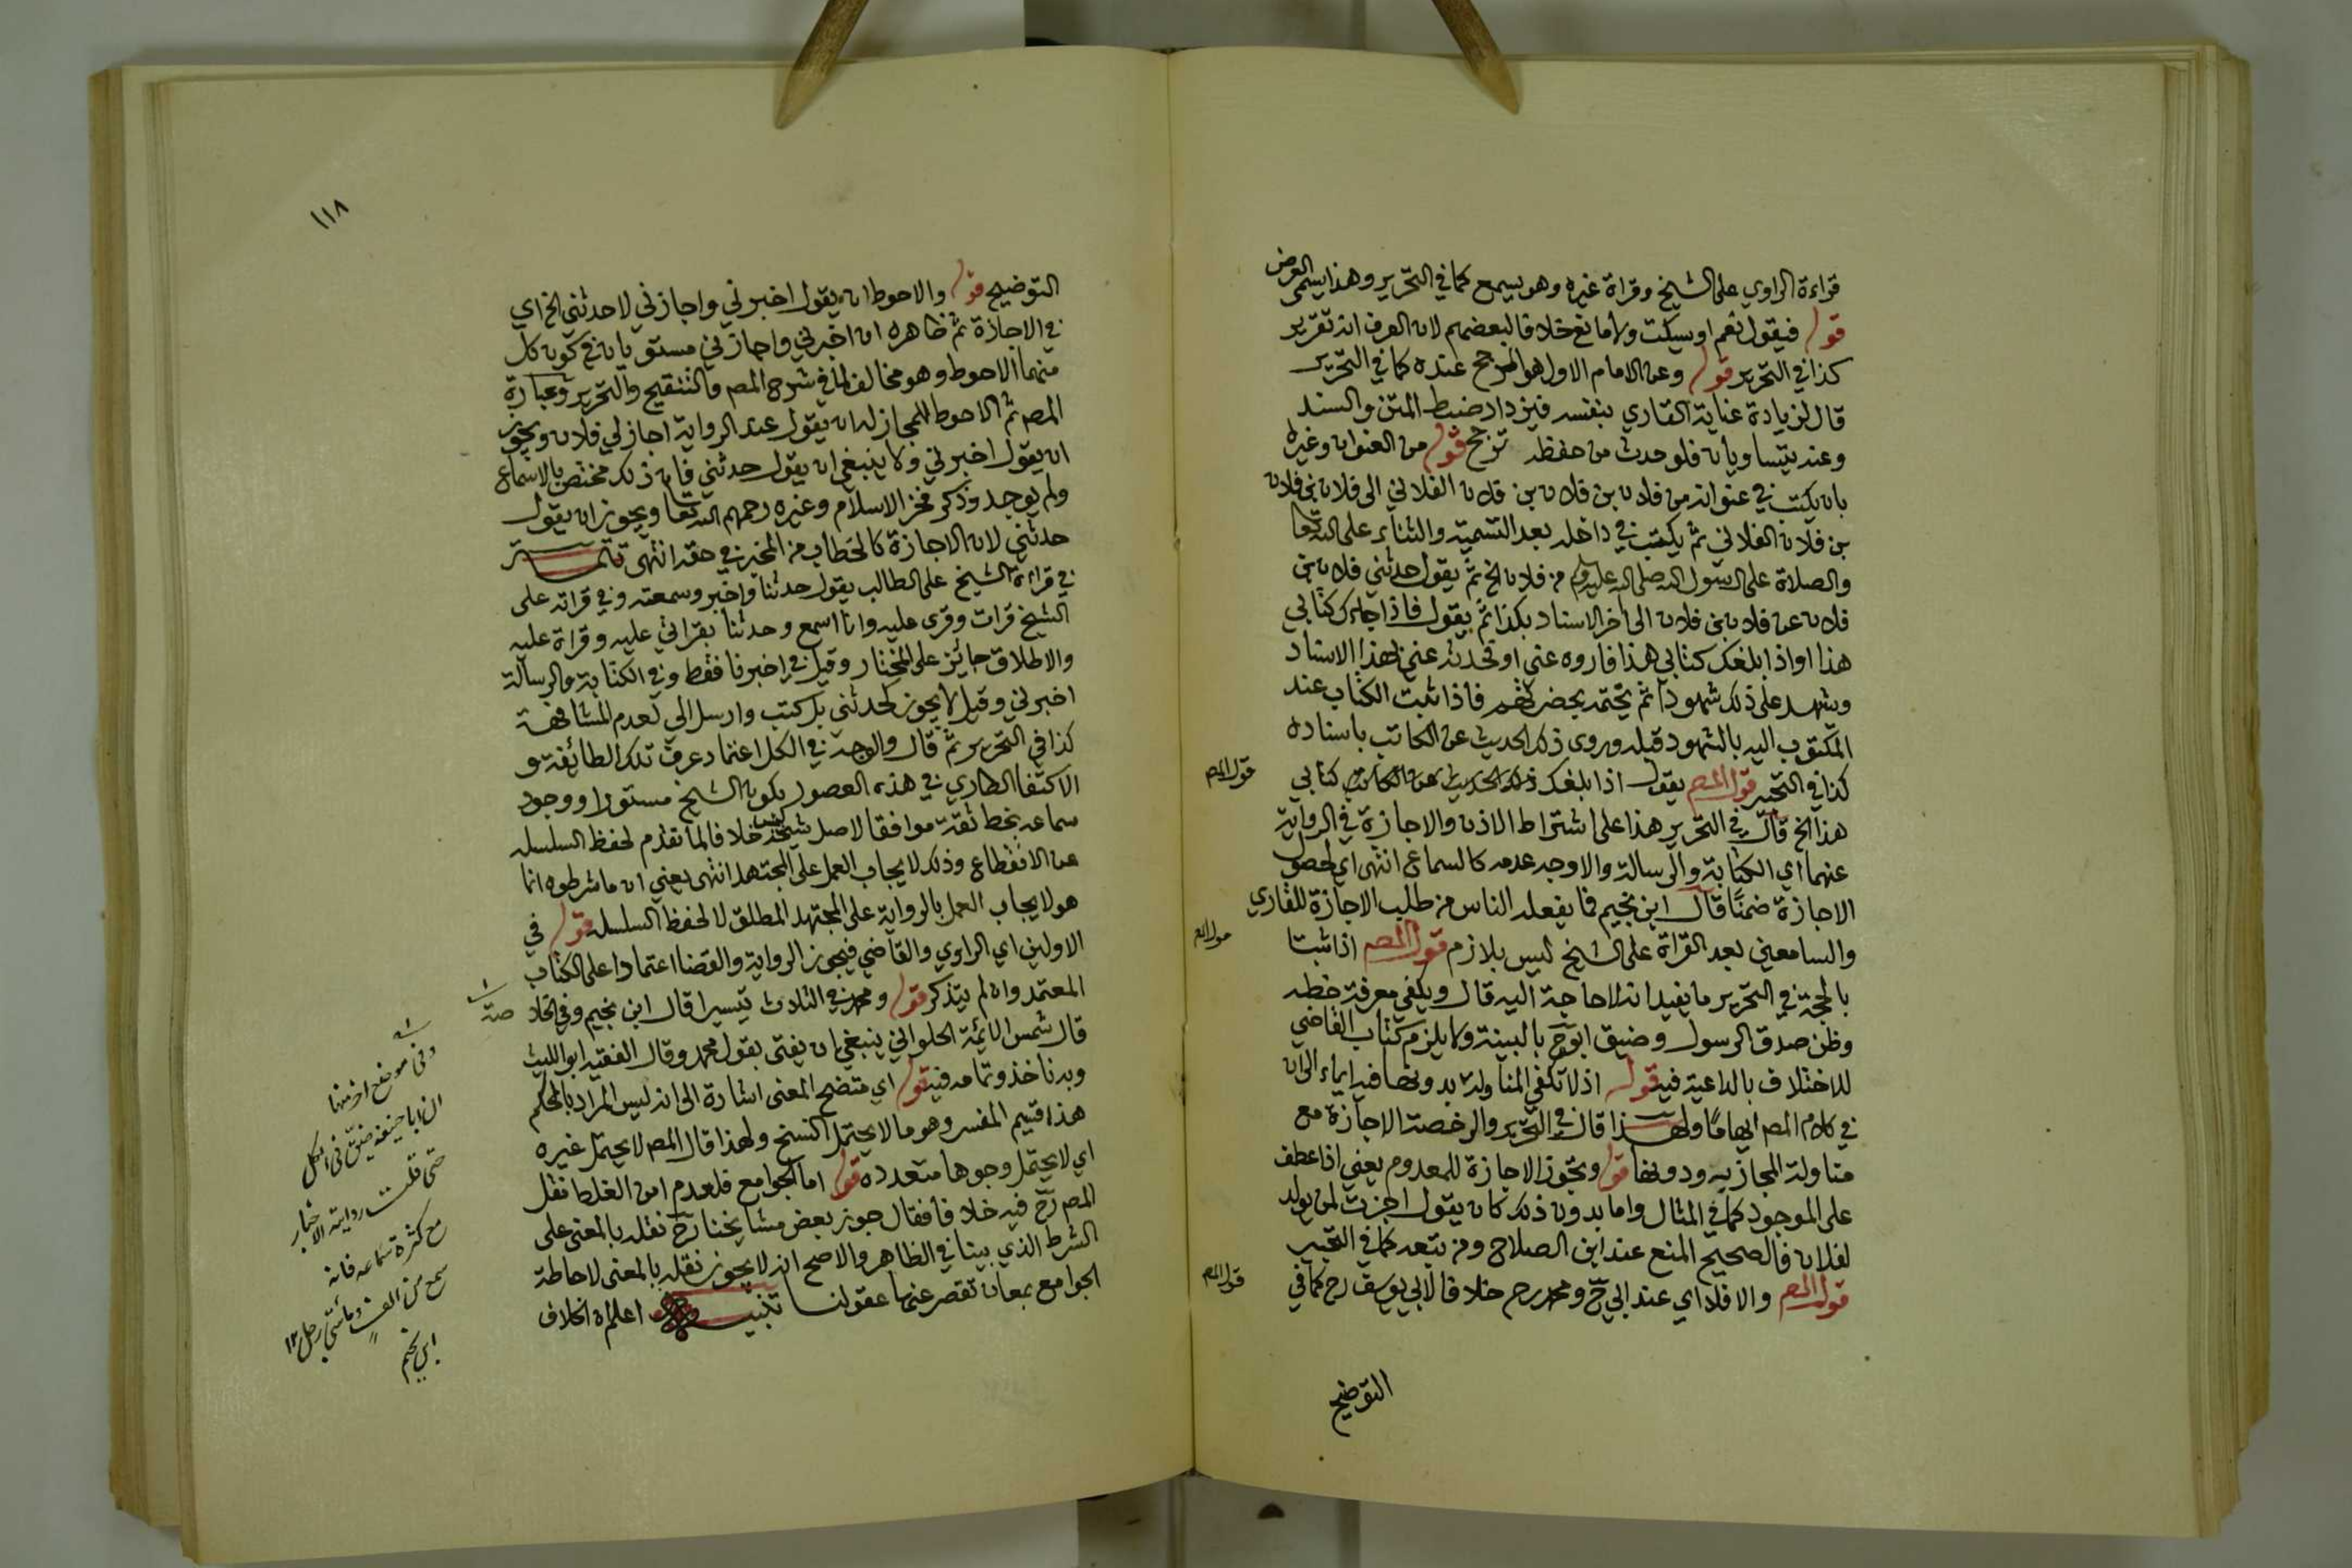 قراءة الراوي على الشيخ وقراة غيره وهو يسمع كما في التحرير وهذا يسمى العرض
قوله فيقول نعم او يسكت ولا مانع خلافا لبعضهم لان العرف انه تقرير
كذا في التحرير قوله وعن الامام الاول هو المرجح عنده كما في التحرير
قال لزيادة عناية القاري بنفسه فيزداد ضبط المتن والسند
وعنه يتساويان فلو حدث من حفظه ترجح قوله من العنوان وغيره
بان يكتب في عنوانه من فلان بن فلان بن فلان الفلاني الى فلان بن فلان
بن فلان الفلاني ثم يكتب في داخله بعد التسمية والثناء على الله تعا
والصلاة على الرسول صلى الله عليه وسلم من فلان الخ ثم يقول حدثني فلان بن
فلان عن فلان بن فلان الى اخر الاسناد بكذا ثم يقول فاذا جاءك كتابي
هذا او اذا بلغك كتابي هذا فاروه عني او تحدث عني بهذا الاسناد
وشهد على ذلك شهودا ثم يختمه بحضرتهم فاذا ثبت الكتاب عند
المكتوب اليه بالشهود قبله وروى ذلك الحديث عن الكاتب باسناده
كذا في التحبير قول المصـ يقول اذا بلغك كتابي
قول المصـ
هذا الخ قال في التحرير هذا على اشتراط الاذن والاجازة في الرواية
عنهما اي الكتابة والرسالة والاوجه عدمه كالسماع انتهى اي لحصول
الاجازة ضمنا قال ابن نجيم فما يفعله الناس من طلب الاجازة للقاري
والسامعين بعد القراة على الشيخ ليس بلازم قول المصـ اذا ثبتا
قول المصـ
بالحجة في التحرير ما يفيد انه لا حاجة اليه قال ويكفي معرفة خطه
وظن صدق الرسول وضيق ابو ح بالبينة ولا يلزم كتاب القاضي
للاختلاف بالداعية فيه قوله اذ لا تكفي المناولة بدونها فيه ايماء الى ان
في كلام المصـ ايهاما ولهذا قال في التحرير والرخصة الاجازة مع
مناولة المجاز به ودونها قوله وتجوز الاجازة للمعدوم يعني اذا عطف
على الموجود كما في المثال واما بدون ذلك كان يقول اجزت لمن يولد
لفلان فالصحيح المنع عند ابن الصلاح ومن تبعه كما في التحبير
قول المصـ والا فلا اي عند ابي ح ومحمد رحـ خلافا لابي يوسف رحـ كما في
قول المصـ
التوضيح
١١٨
التوضيح قوله والاحوط ان يقول اخبرني واجازني لا حدثني الخ اي
في الاجازة ثم ظاهره ان اخبرني واجازني مستويان في كون كل
منهما الاحوط وهو مخالف لما في شرح المصـ والتنقيح والتحرير وعبارة
المصـ ثم الاحوط للمجاز له ان يقول عند الرواية اجازلي فلان ويجوز
ان يقول اخبرني ولا ينبغي ان يقول حدثني فان ذلك مختص بالاسماع
ولم يوجد وذكر فخر الاسلام وغيره رحمهم الله تعا ويجوز ان يقول
حدثني لان الاجازة كالخطاب من المخبر في حقه انتهى تتمـــة
في قراءة الشيخ على الطالب يقول حدثنا واخبر وسمعته وفي قراته على
الشيخ قرات وقرى عليه وانا اسمع وحدثنا بقراتي عليه وقراة عليه
والاطلاق جائز على المختار وقيل في اخبرنا فقط وفي الكتابة والرسالة
اخبرني وقيل لا يجوز كحدثني بل كتب وارسل الي لعدم المشافهة
كذا في التحرير ثم قال والوجه في الكل اعتماد عرف تلك الطائفة و
الاكتفا الطاري في هذه العصور بكون الشيخ مستورا ووجود
سماعه بخط ثقة موافقا لاصل شيخه خلافا لما تقدم لحفظ السلسله
عن الانقطاع وذلك لايجاب العمل على المجتهد انتهى يعني ان ما شرطوه انما
هو لايجاب العمل بالرواية على المجتهد المطلق لا لحفظ السلسله قوله في
الاولين اي الراوي والقاضي فيجوز الرواية والقضا اعتمادا على الكتاب
المعتمد وان لم يتذكر قوله ومحمد في الثلاث تيسيرا قال ابن نجيم وفي الخلا
صة
قال شمس الائمة الحلواني ينبغي ان يفتى بقول محمد وقال الفقيه ابو الليث
وبه ناخذ وتمامه فيه قوله اي متضح المعنى اشارة الى انه ليس المراد بالمحكم
هذا قسيم المفسر وهو ما لا يحتمل النسخ ولهذا قال المصـ لا يحتمل غيره
اي لا يحتمل وجوها متعدده قوله اما الجوامع فلعدم امن الغلط نقل
المصـ رح فيه خلافا فقال جوز بعض مشايخنا رح نقله بالمعنى على
الشرط الذي بينا في الظاهر والاصح انه لا يجوز نقله بالمعنى لاحاطة
الجوامع بمعان تقصر عنها عقولنا تنبيـــه اعلم ان الخلاف
وفي موضع اخر منها
ان ابا حنيفة ضيق في الكل
حتى قلت رواية الاخبار
مع كثرة سماعه فانه
سمع من الف ومائتي رجل ١٢
ابن نجيم